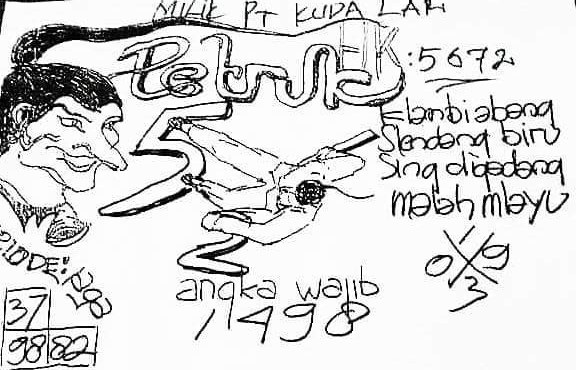 MILIK PT KUDA LARI
Petruk HK : 5672
Klambi abang
Slendang biru
Sing digadang
malah mlayu
5
2
1
0 9
3
angka wajib
1498
37
98 82